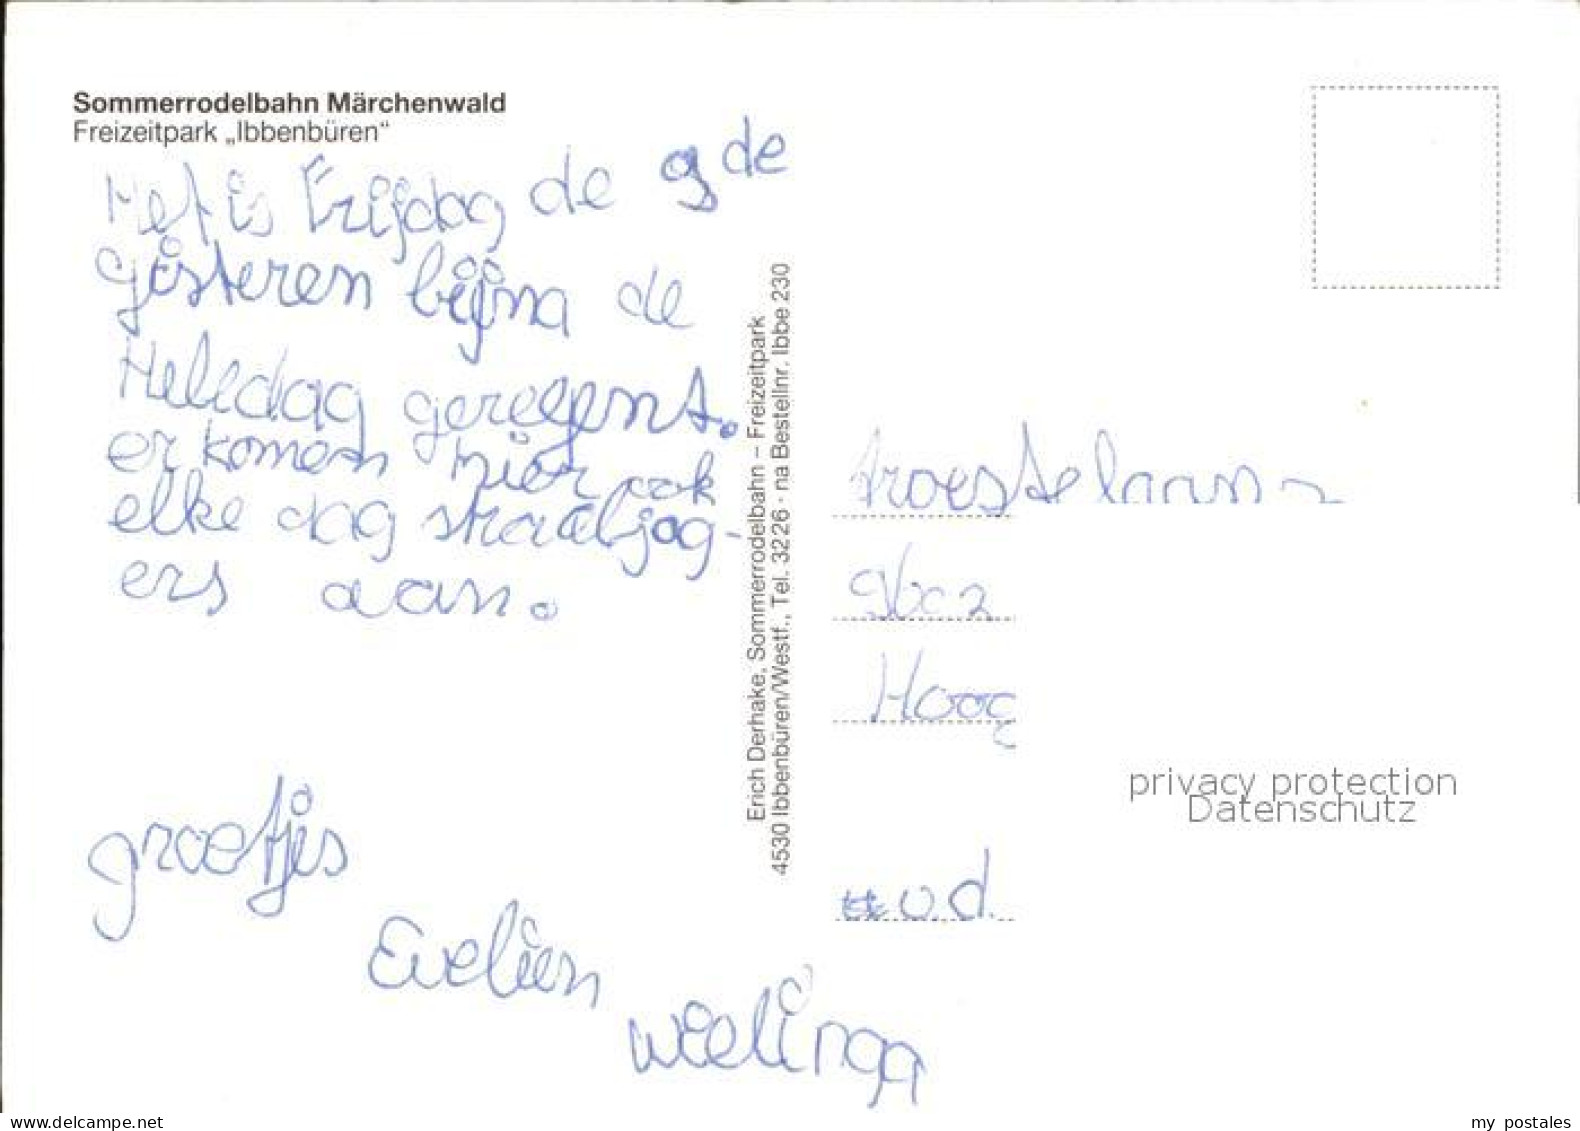 Sommerrodelbahn Märchenwald
Freizeitpark „Ibbenbüren"
Het is Frijdag de 9de
Gisteren bijna de
Heledag geregent.
er komen hier ook
elke dag straaljag-
ers aan.
groetjes
Evelien
wielinga
Erich Derhake, Sommerrodelbahn – Freizeitpark
4530 Ibbenbüren/Westf., Tel. 3226 · na Bestellnr. Ibbe 230
Hoog
v.d.
privacy protection
Datenschutz
www.delcampe.net
my postales